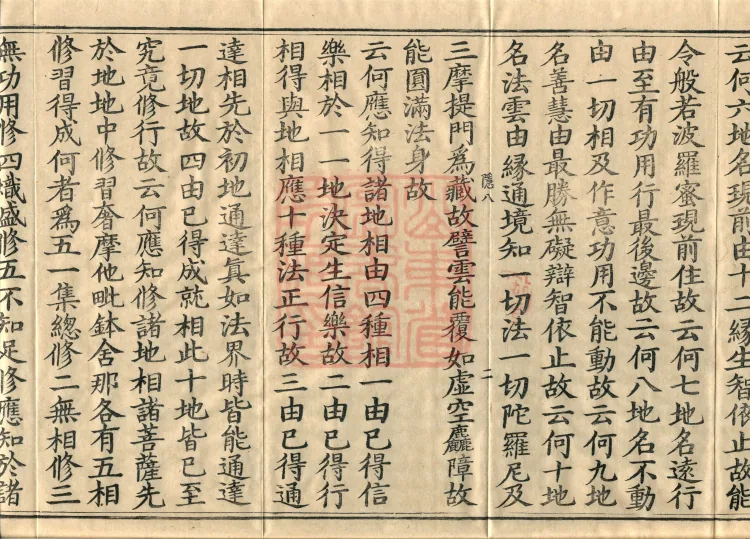 云何六地名現前由十二緣生智依止故能
令般若波羅蜜現前住故云何七地名遠行
由至有功用行最後邊故云何八地名不動
由一切相及作意功用不能動故云何九地
名善慧由最勝無礙辯智依止故云何十地
名法雲由緣通境知一切法一切陀羅尼及
隱八 二
三摩提門爲藏故譬雲能覆如虛空麤障故
能圓滿法身故
云何應知得諸地相由四種相一由已得信
樂相於一一地決定生信樂故二由已得行
相得與地相應十種法正行故三由已得通
達相先於初地通達眞如法界時皆能通達
一切地故四由已得成就相此十地皆已至
究竟修行故云何應知修諸地相諸菩薩先
於地地中修習奢摩他毗鉢舍那各有五相
修習得成何者爲五一集總修二無相修三
無功用修四熾盛修五不知足修應知於諸